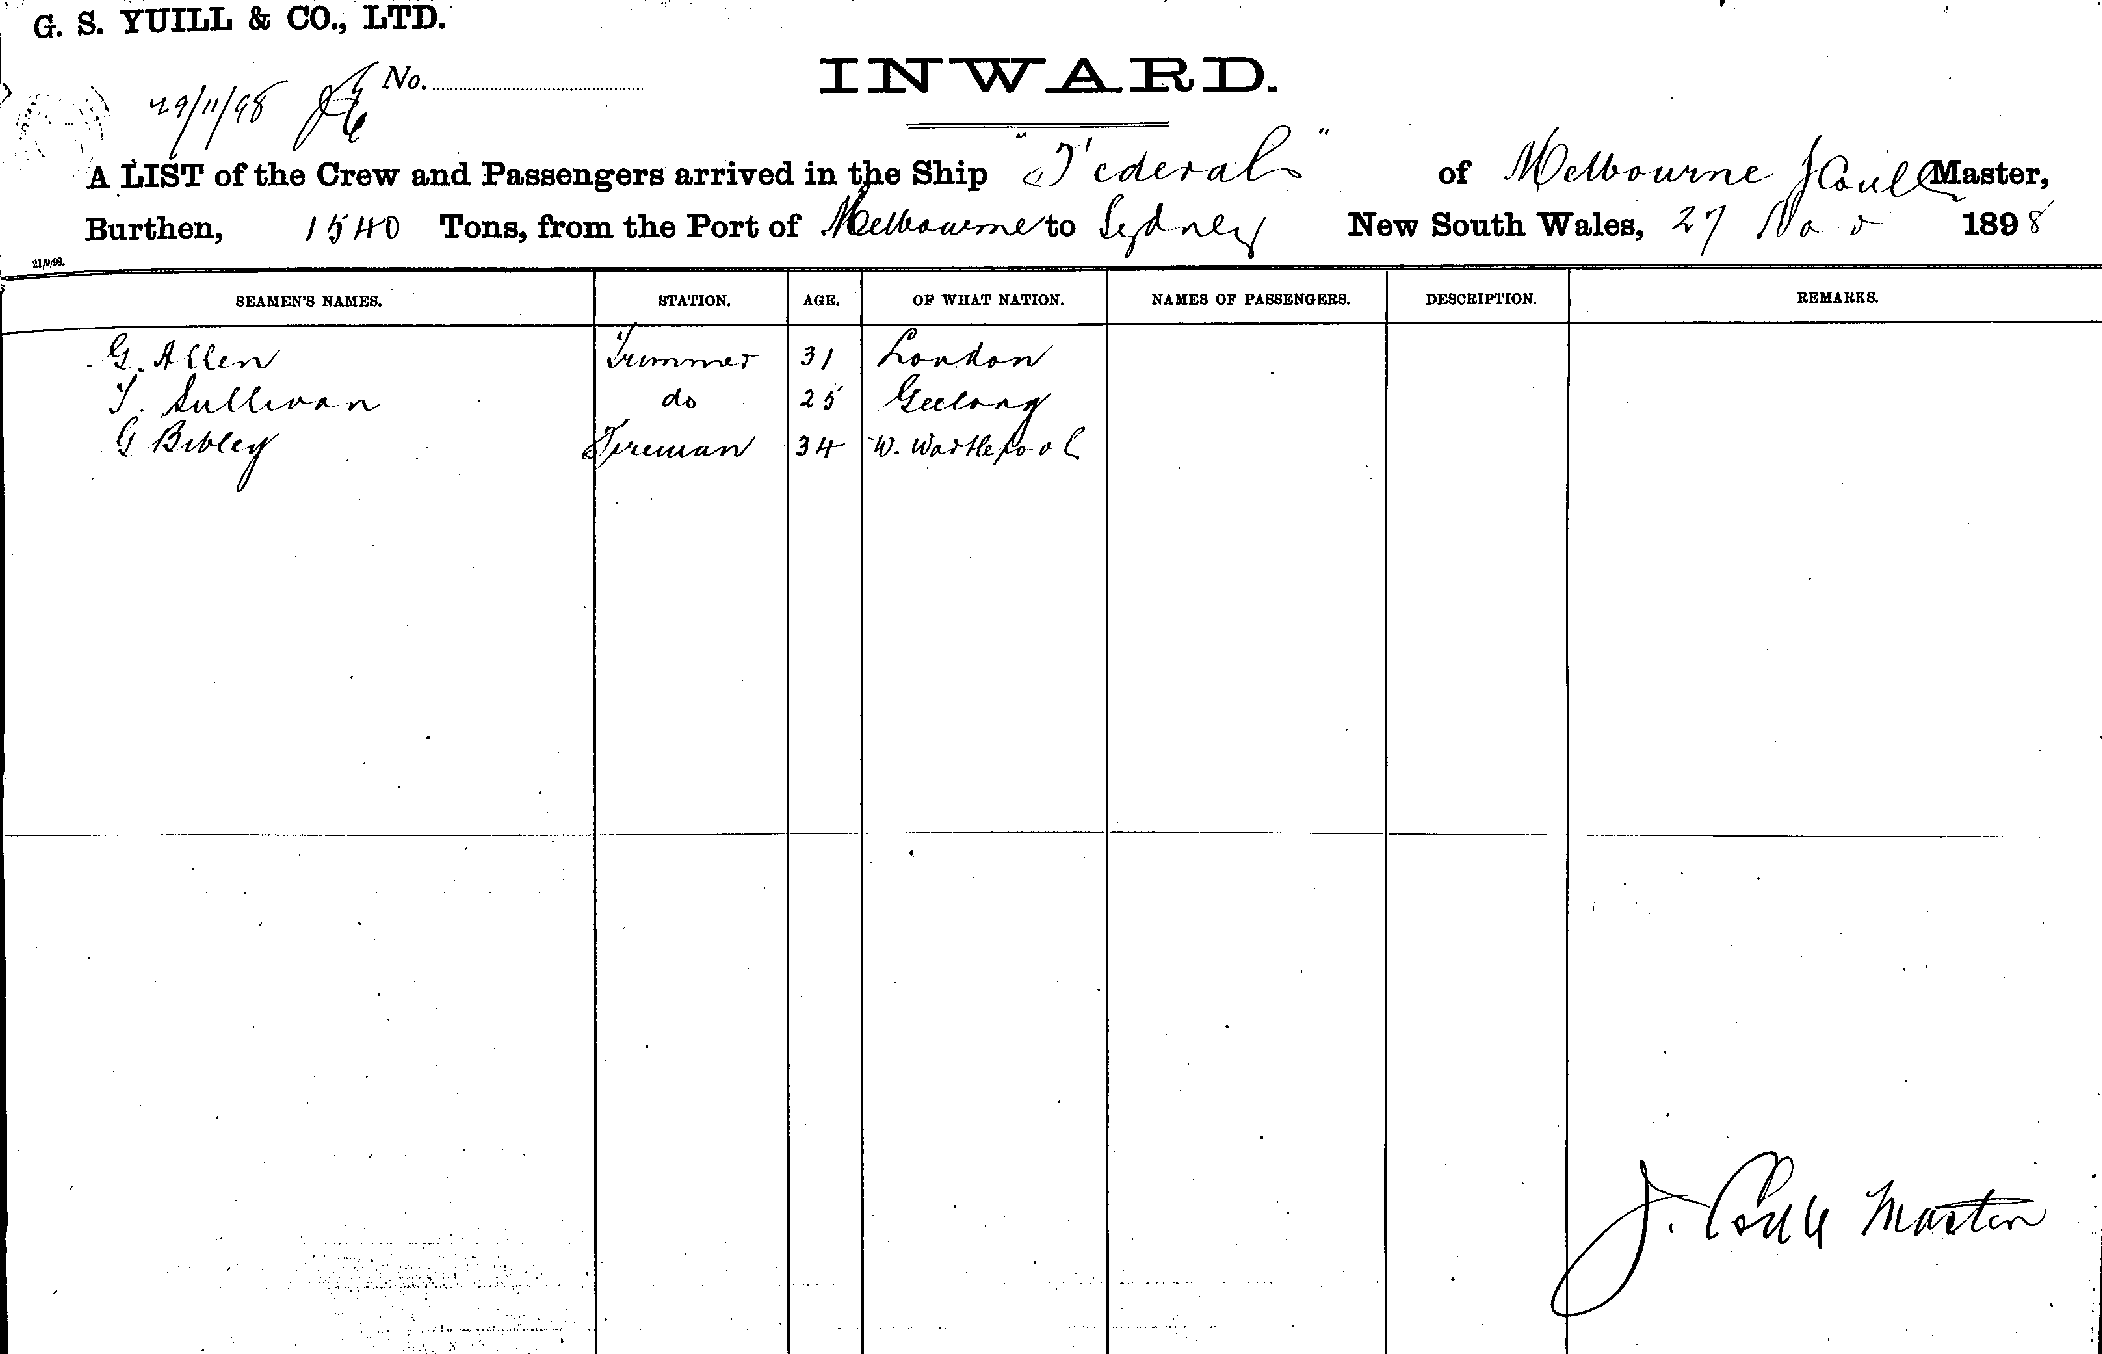 G. S. YUILL & CO., LTD.
INWARD.
29/11/98 No.
A LIST of the Crew and Passengers arrived in the Ship "Federal" of Melbourne J Coull Master,
Burthen, 1540 Tons, from the Port of Melbourne to Sydney New South Wales, 27 Nov 1898
SEAMEN'S NAMES. STATION. AGE. OF WHAT NATION. NAMES OF PASSENGERS. DESCRIPTION. REMARKS.
G. Allen Trimmer 31 London
T. Sullivan do 25 Geelong
G Bibley Fireman 34 W. Hartlepool
J. Coull Master